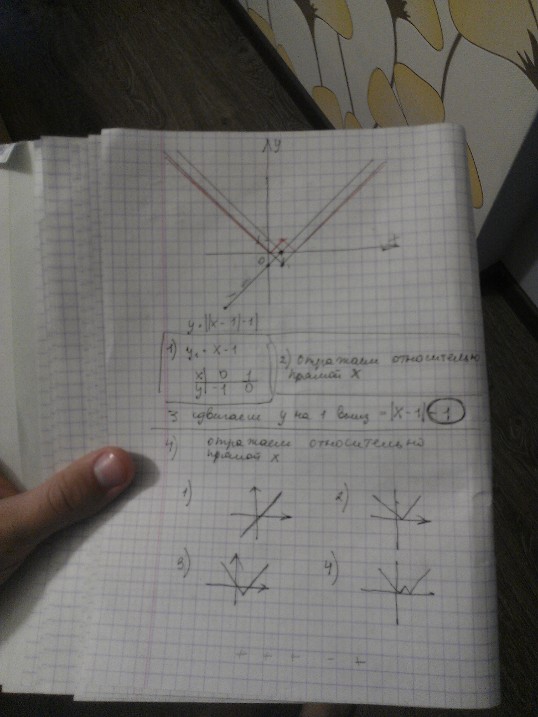 y
x
1
0
y = ||x-1|-1|
1) y = x-1
x | 0 | 1
y | -1 | 0
2) отражаем относительно
прямой x
3 сдвигаем y на 1 вниз - |x-1| -1
4) отражаем относительно
прямой x
1)
2)
3)
4)
+ - + - +